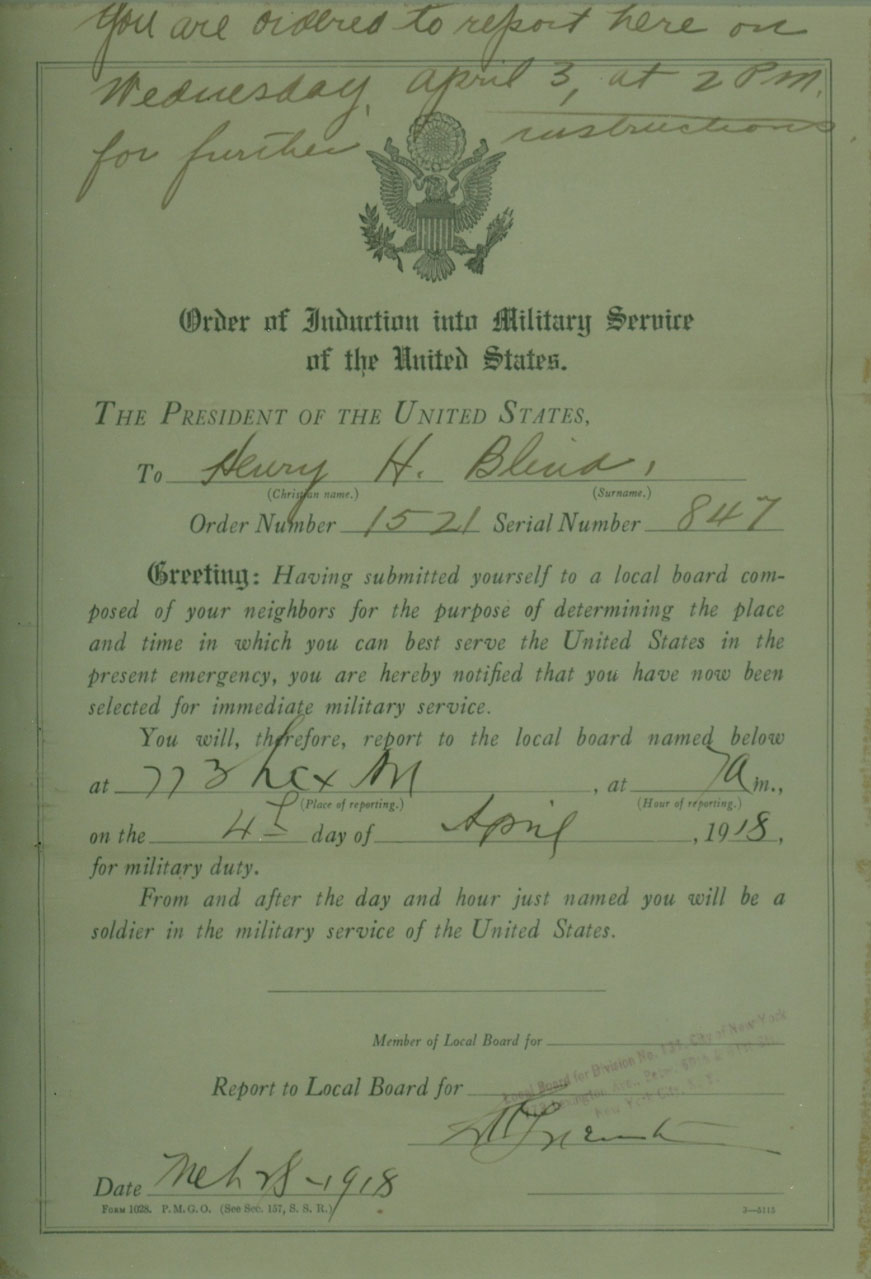 You are ordered to report here on
Wednesday, April 3, at 2 P.M.
for further instructions.
Order of Induction into Military Service
of the United States.
THE PRESIDENT OF THE UNITED STATES,
To Henry H. Blind,
(Christian name.) (Surname.)
Order Number 1521 Serial Number 847
Greeting: Having submitted yourself to a local board com-
posed of your neighbors for the purpose of determining the place
and time in which you can best serve the United States in the
present emergency, you are hereby notified that you have now been
selected for immediate military service.
You will, therefore, report to the local board named below
at 773 Lex Av , at 7 a m.,
(Place of reporting.) (Hour of reporting.)
on the 4th day of April , 1918,
for military duty.
From and after the day and hour just named you will be a
soldier in the military service of the United States.
Member of Local Board for
Local Board for Division No. 134, City of New York
Report to Local Board for
Lexington Ave., 60th & 61st Sts.
New York City, N. Y.
Date Mch 28-1918
FORM 1028. P. M. G. O. (See Sec. 157, S. S. R.) 3—5115